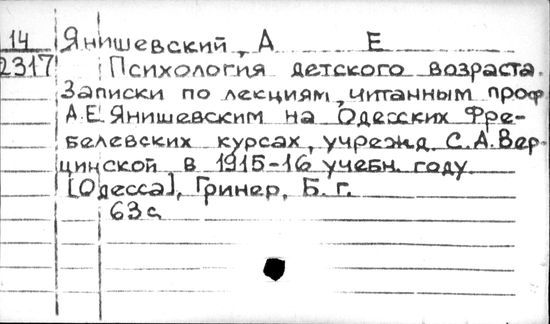 14 Янишевский, А Е
2317 Психология детского возраста.
Записки по лекциям, читанным проф
А.Е.Янишевским на Одесских Фре-
белевских курсах, учрежд. С.А.Вер-
цинской в 1915-16 учебн. году
[Одесса], Гринер, Б. г.
63с.